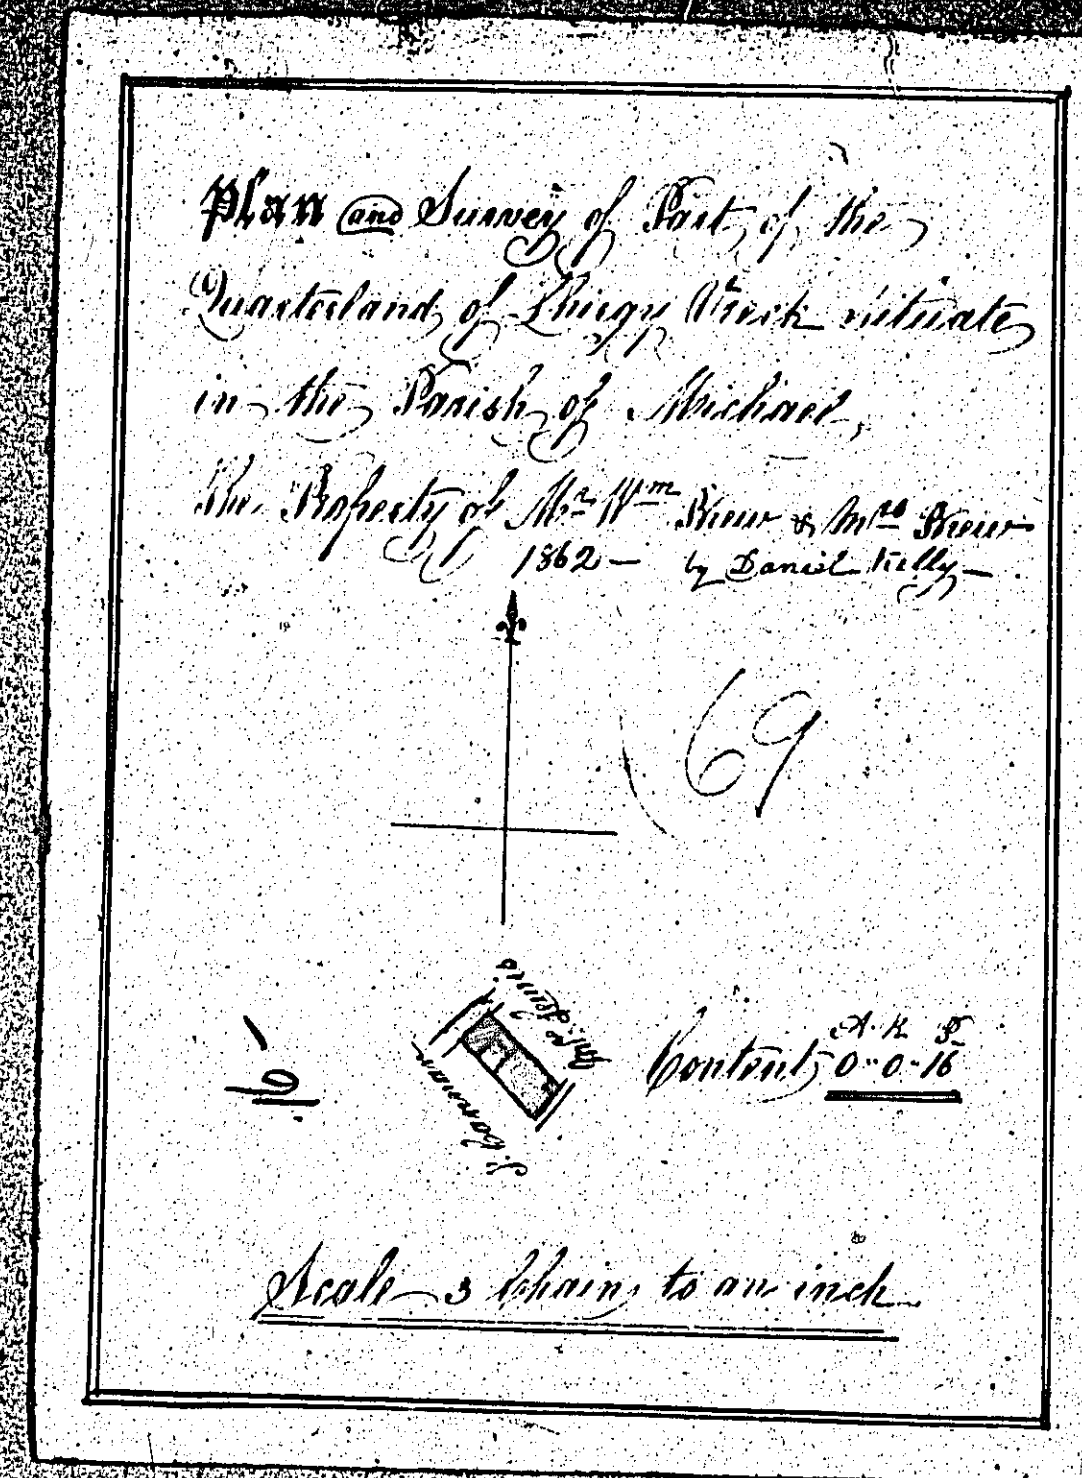 Plan and Survey of Part of the
Quarterland of Lhiergy Vreck situate
in the Parish of Michael,
the Property of Mr Wm Skew & Mrs Skew
1862 — by Daniel Kelly —
69
J. Cannan
Content
A. R. P.
0 " 0 " 16
Scale 3 Chains to an inch